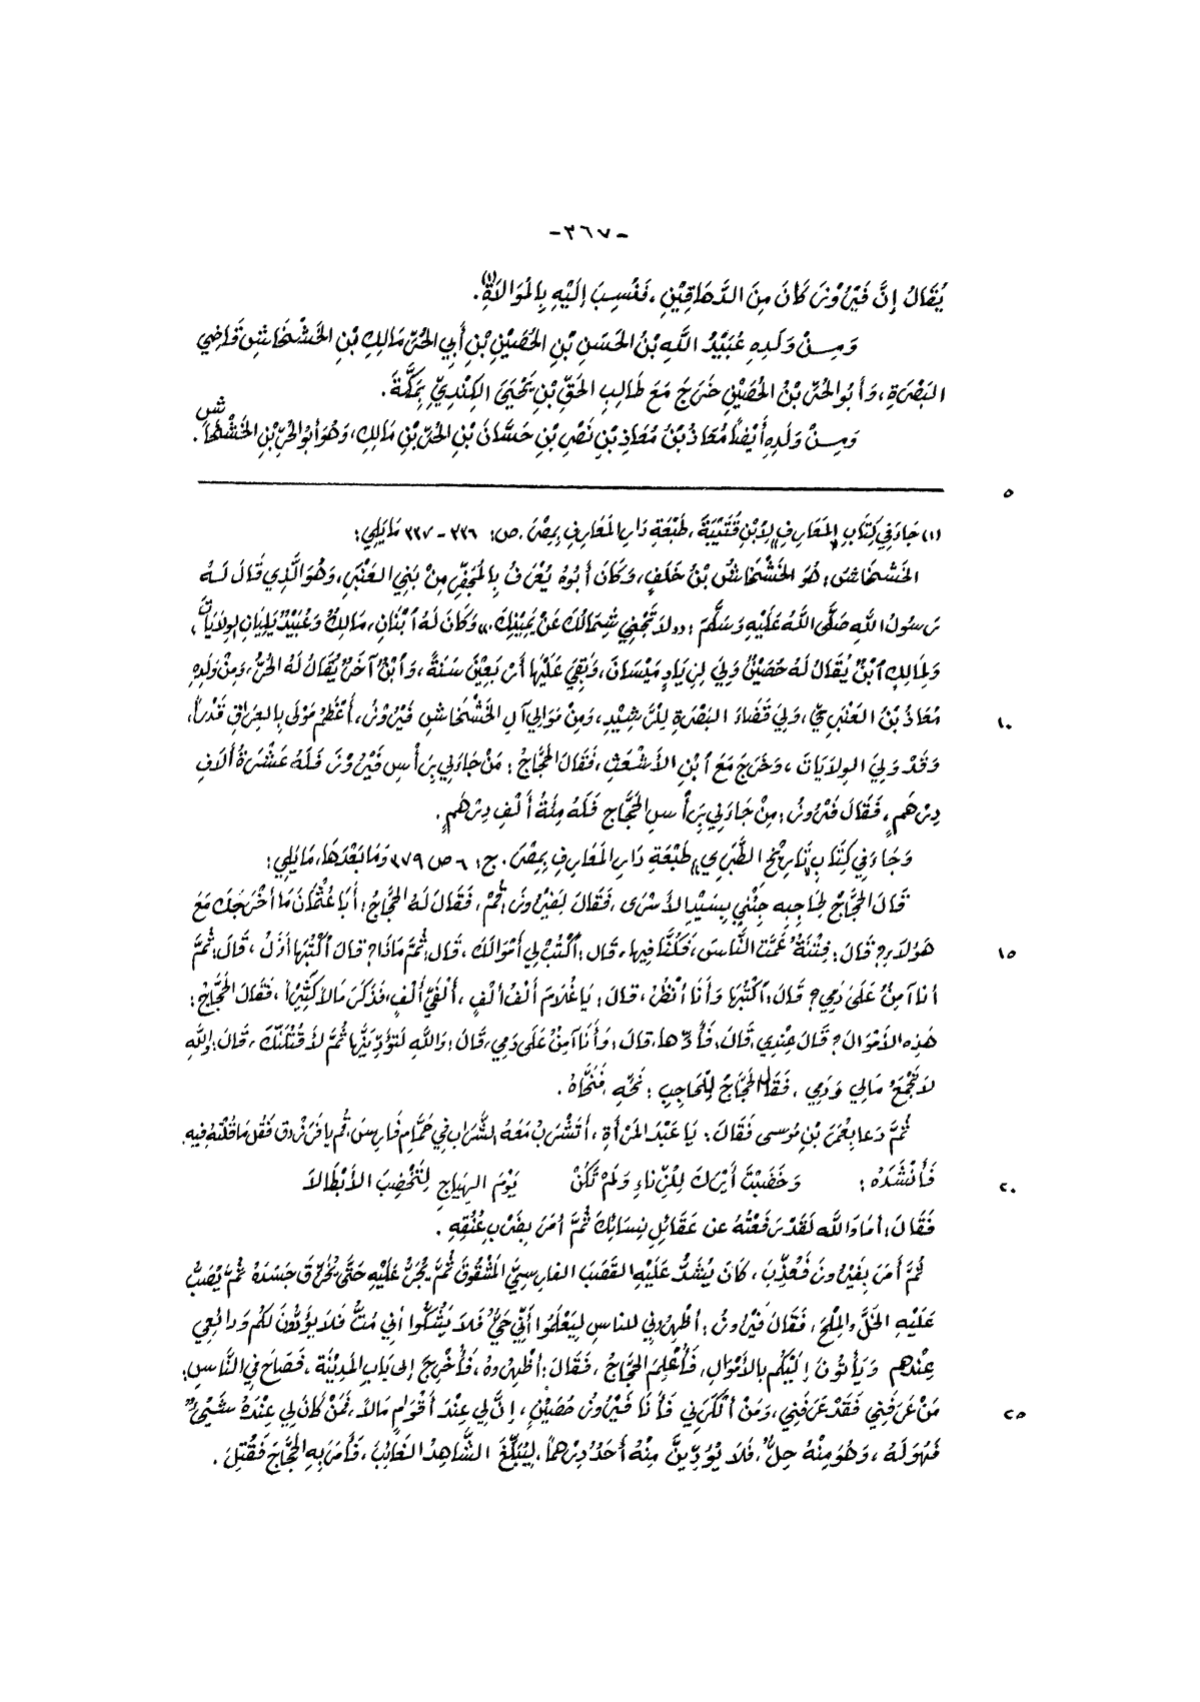 -٣٦٧-
يُقَالُ إِنَّ فَيْرُوزَ كَانَ مِنَ الدَّهَاقِيْنِ ، فَنُسِبَ إِلَيْهِ بِالمُوَالَاةِ(١).
وَمِنْ وَلَدِهِ عُبَيْدُ اللَّهِ بْنُ الحَسَنِ بْنِ الحُصَيْنِ بْنِ أَبِي الحُرِّ مَالِكِ بْنِ الخَشْخَاشِ قَاضِي
البَصْرَةِ ، وَأَبُو الحُرِّ بْنُ الحُصَيْنِ خَرَجَ مَعَ طَالِبِ الحَقِّ بْنِ يَحْيَى الكِنْدِيِّ بِمَكَّةَ .
وَمِنْ وَلَدِهِ أَيْضاً مُعَاذُ بْنُ مُعَاذِ بْنِ نَصْرِ بْنِ حَسَّانَ بْنِ الحُرِّ بْنِ مَالِكِ، وَهُوَ أَبُو الحُرِّ بْنِ الخَشْخَاشِ .
٥
(١) جَاءَ فِي كِتَابِ المَعَارِفِ لِابْنِ قُتَيْبَةَ ، طَبْعَةِ دَارِ المَعَارِفِ بِمِصْرَ . ص: ٣٣٦ - ٣٣٧ مَايَلِي:
الخَشْخَاشُ : هُوَ الخَشْخَاشُ بْنُ خَلَفٍ، وَكَانَ أَبُوهُ يُعْرَفُ بِالمُجْفِرِ مِنْ بَنِي العَنْبَرِ، وَهُوَ الَّذِي قَالَ لَهُ
رَسُولُ اللَّهِ صَلَّى اللَّهُ عَلَيْهِ وَسَلَّمَ : «لَا تَجْنِي شِمَالُكَ عَنْ يَمِيْنِكَ» وَكَانَ لَهُ ٱبْنَانِ ، مَالِكٌ وَعُبَيْدٌ يَلِيَانِ الوِلَايَاتِ ،
وَلِمَالِكٍ ٱبْنٌ يُقَالُ لَهُ حُصَيْنٌ وَلِيَ لِزِيَادٍ مَيْسَانَ ، وَبَقِيَ عَلَيْهَا أَرْبَعِيْنَ سَنَةً ، وَٱبْنٌ آخَرُ يُقَالُ لَهُ الحُرُّ ، وَمِنْ وَلَدِهِ
مُعَاذُ بْنُ العَنْبَرِيِّ ، وَلِيَ قَضَاءَ البَصْرَةِ لِلرَّشِيْدِ ، وَمِنْ مَوَالِي آلِ الخَشْخَاشِ فَيْرُوزُ ، أَعْظَمُ مَوْلَى بِالعِرَاقِ قَدْراً ،
١٠
وَقَدْ وَلِيَ الوِلَايَاتَ ، وَخَرَجَ مَعَ ٱبْنِ الأَشْعَثِ ، فَقَالَ الحَجَّاجُ : مَنْ جَاءَنِي بِرَأْسِ فَيْرُوزَ فَلَهُ عَشْرَةُ أَلَافِ
دِرْهَمٍ ، فَقَالَ فَيْرُوزُ : مَنْ جَاءَنِي بِرَأْسِ الحَجَّاجِ فَلَهُ مِئَةُ أَلْفِ دِرْهَمٍ .
وَجَاءَ فِي كِتَابِ تَارِيْخِ الطَّبَرِي، طَبْعَةِ دَارِ المَعَارِفِ بِمِصْرَ . ج: ٦ ص ٣٧٩ وَمَابَعْدَهَا، مَايَلِي:
قَالَ الحَجَّاجُ لِحَاجِبِهِ جِئْنِي بِسَيِّدِ الأَسْرَى ، فَقَالَ لِفَيْرُوزَ : قُمْ ، فَقَالَ لَهُ الحَجَّاجُ : أَبَا عُثْمَانَ مَا أَخْرَجَكَ مَعَ
هَؤُلَاءِ؟ قَالَ : فِتْنَةٌ عَمَّتِ النَّاسَ ، فَكُنَّا فِيهَا ، قَالَ : ٱكْتُبْ لِي أَمْوَالَكَ ، قَالَ : ثُمَّ مَاذَا؟ قَالَ ٱكْتُبْهَا أَوَّلُ ، قَالَ : ثُمَّ
١٥
أَنَا آمِنٌ عَلَى دَمِي؟ قَالَ : ٱكْتُبْهَا وَأَنَا أَنْظُرْ ، قَالَ : يَاغُلَامُ أَلْفُ أَلْفٍ ، أَلْفَيْ أَلْفٍ، فَذَكَرَ مَالاً كَثِيْراً ، فَقَالَ الحَجَّاجُ :
هَذِهِ الأَمْوَالَ؟ قَالَ عِنْدِي ، قَالَ : فَأَدِّهَا ، قَالَ : وَأَنَا آمِنٌ عَلَى دَمِي ، قَالَ : وَاللَّهِ لَتُؤَدِّيَنَّهَا ثُمَّ لأَقْتُلَنَّكَ ، قَالَ : وَاللَّهِ
لَا تَجْمَعْ مَالِي وَدَمِي ، فَقَالَ الحَجَّاجُ لِلْحَاجِبِ : نَحِّهِ ، فَنَحَّاهُ .
ثُمَّ دَعَا بِعُمَرَ بْنِ مُوسى فَقَالَ : يَا عَبْدَ المَرْأَةِ ، أَتَشْرَبُ مَعَهُ الشَّرَابَ فِي حَمَّامِ فَارِسَ ، قُمْ يَا فَرَزْدَق فَقُلْ مَا قُلْتَهُ فِيهِ.
فَأَنْشَدَهُ : وَخَضَبْتَ أَيْرَكَ لِلزِّنَاءِ وَلَمْ تَكُنْ يَوْمَ الهِيَاجِ لِتَخْضِبَ الأَبْطَالَا
٢٠
فَقَالَ : أَمَا وَاللَّهِ لَقَدْ رَفَعْتُهُ عن عَقَائِلِ نِسَائِكَ ثُمَّ أَمَرَ بِضَرْبِ عُنُقِهِ .
ثُمَّ أَمَرَ بِفَيْرُوزَ فَعُذِّبَ ، كَانَ يُشَدُّ عَلَيْهِ القَصَبَ الفَارِسِيَّ المَشْقُوقَ ثُمَّ يُجَرُّ عَلَيْهِ حَتَّى يُخَرَّقَ جَسَدَهُ ثُمَّ يَصُبُّ
عَلَيْهِ الخَلَّ وَالمِلْحَ ، فَقَالَ فَيْرُوزُ : أَظْهِرُونِي للناسِ لِيَعْلَمُوا أَنِّي حَيٌّ فَلَا يَشُكُّوا أَنِّي مُتُّ فَلَا يُؤَدُّونَ لَكُمْ وَدَائِعِي
عِنْدَهم وَيَأْتُونَ إِلَيْكُم بِالأَمْوَالِ ، فَأُعْلِمَ الحَجَّاجُ ، فَقَالَ : أَظْهِرُوهُ ، فَأُخْرِجَ إِلى بَابِ المَدِيْنَةِ ، فَصَاحَ فِي النَّاسِ :
مَنْ عَرَفَنِي فَقَدْ عَرَفَنِي ، وَمَنْ أَنْكَرَنِي فَأَنَا فَيْرُوزُ حُصَيْنٍ ، إِنَّ لِي عِنْدَ أَقْوَامٍ مَالاً ، فَمَنْ كَانَ لِي عِنْدَهُ شَيْءٌ
٢٥
فَهُوَ لَهُ ، وَهُوَ مِنْهُ حِلٌّ ، فَلَا يُؤَدِّيَنَّ مِنْهُ أَحَدٌ دِرْهَماً ، لِيُبَلِّغَ الشَّاهِدُ الغَائِبَ ، فَأَمَرَ بِهِ الحَجَّاجَ فَقُتِلَ .